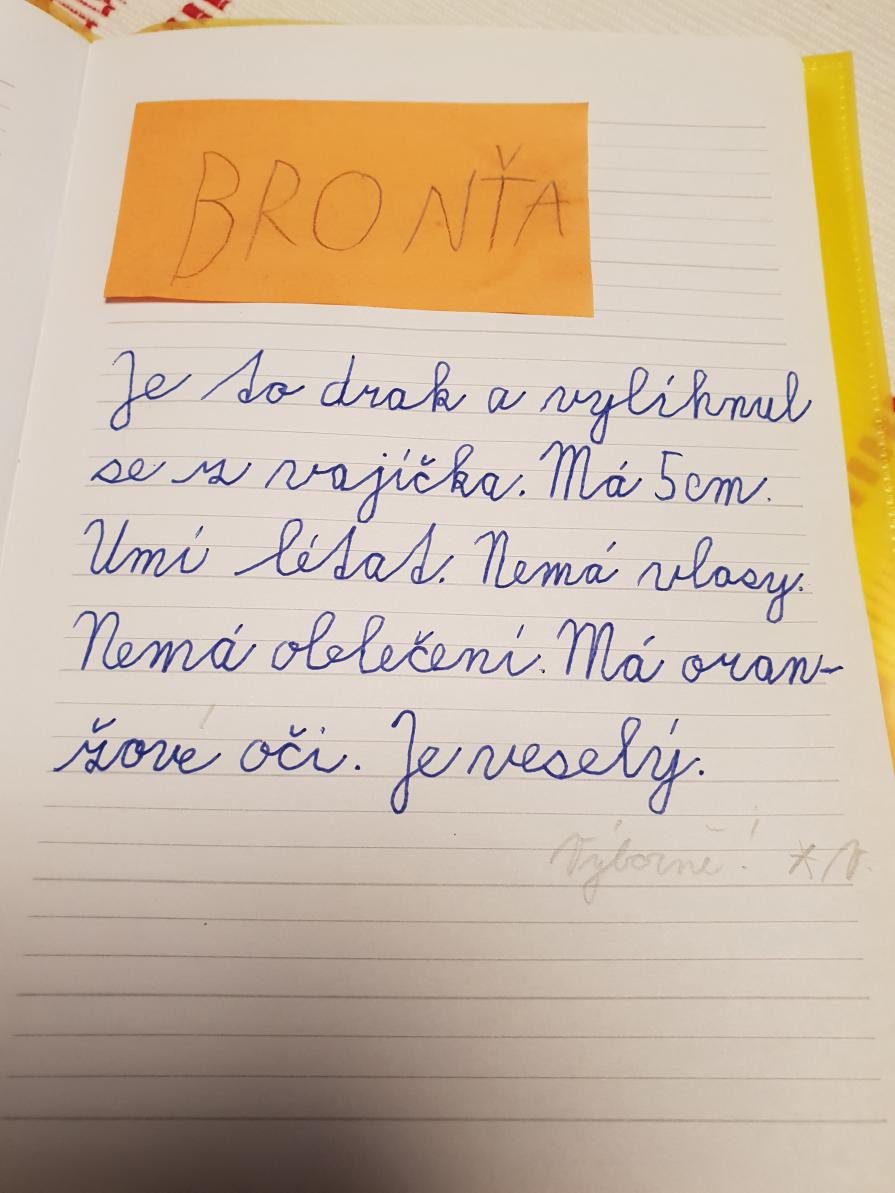 BRONŤA
Je to drak a vylíhnul
se z vajíčka. Má 5cm.
Umí létat. Nemá vlasy.
Nemá oblečení. Má oran-
žové oči. Je veselý.
Výborně! *